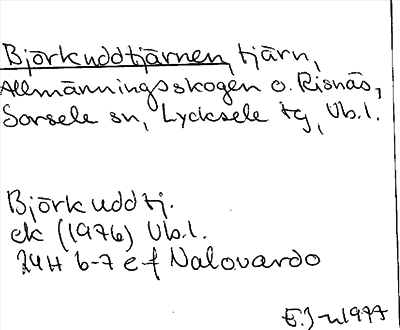 Björkuddtjärnen, tjärn,
Allmänningsskogen o. Risnäs,
Sorsele sn, Lycksele tg, Vb.l.
Björkuddtj.
ek (1976) Vb.l.
24H 6-7 e-f Nalovardo
1977